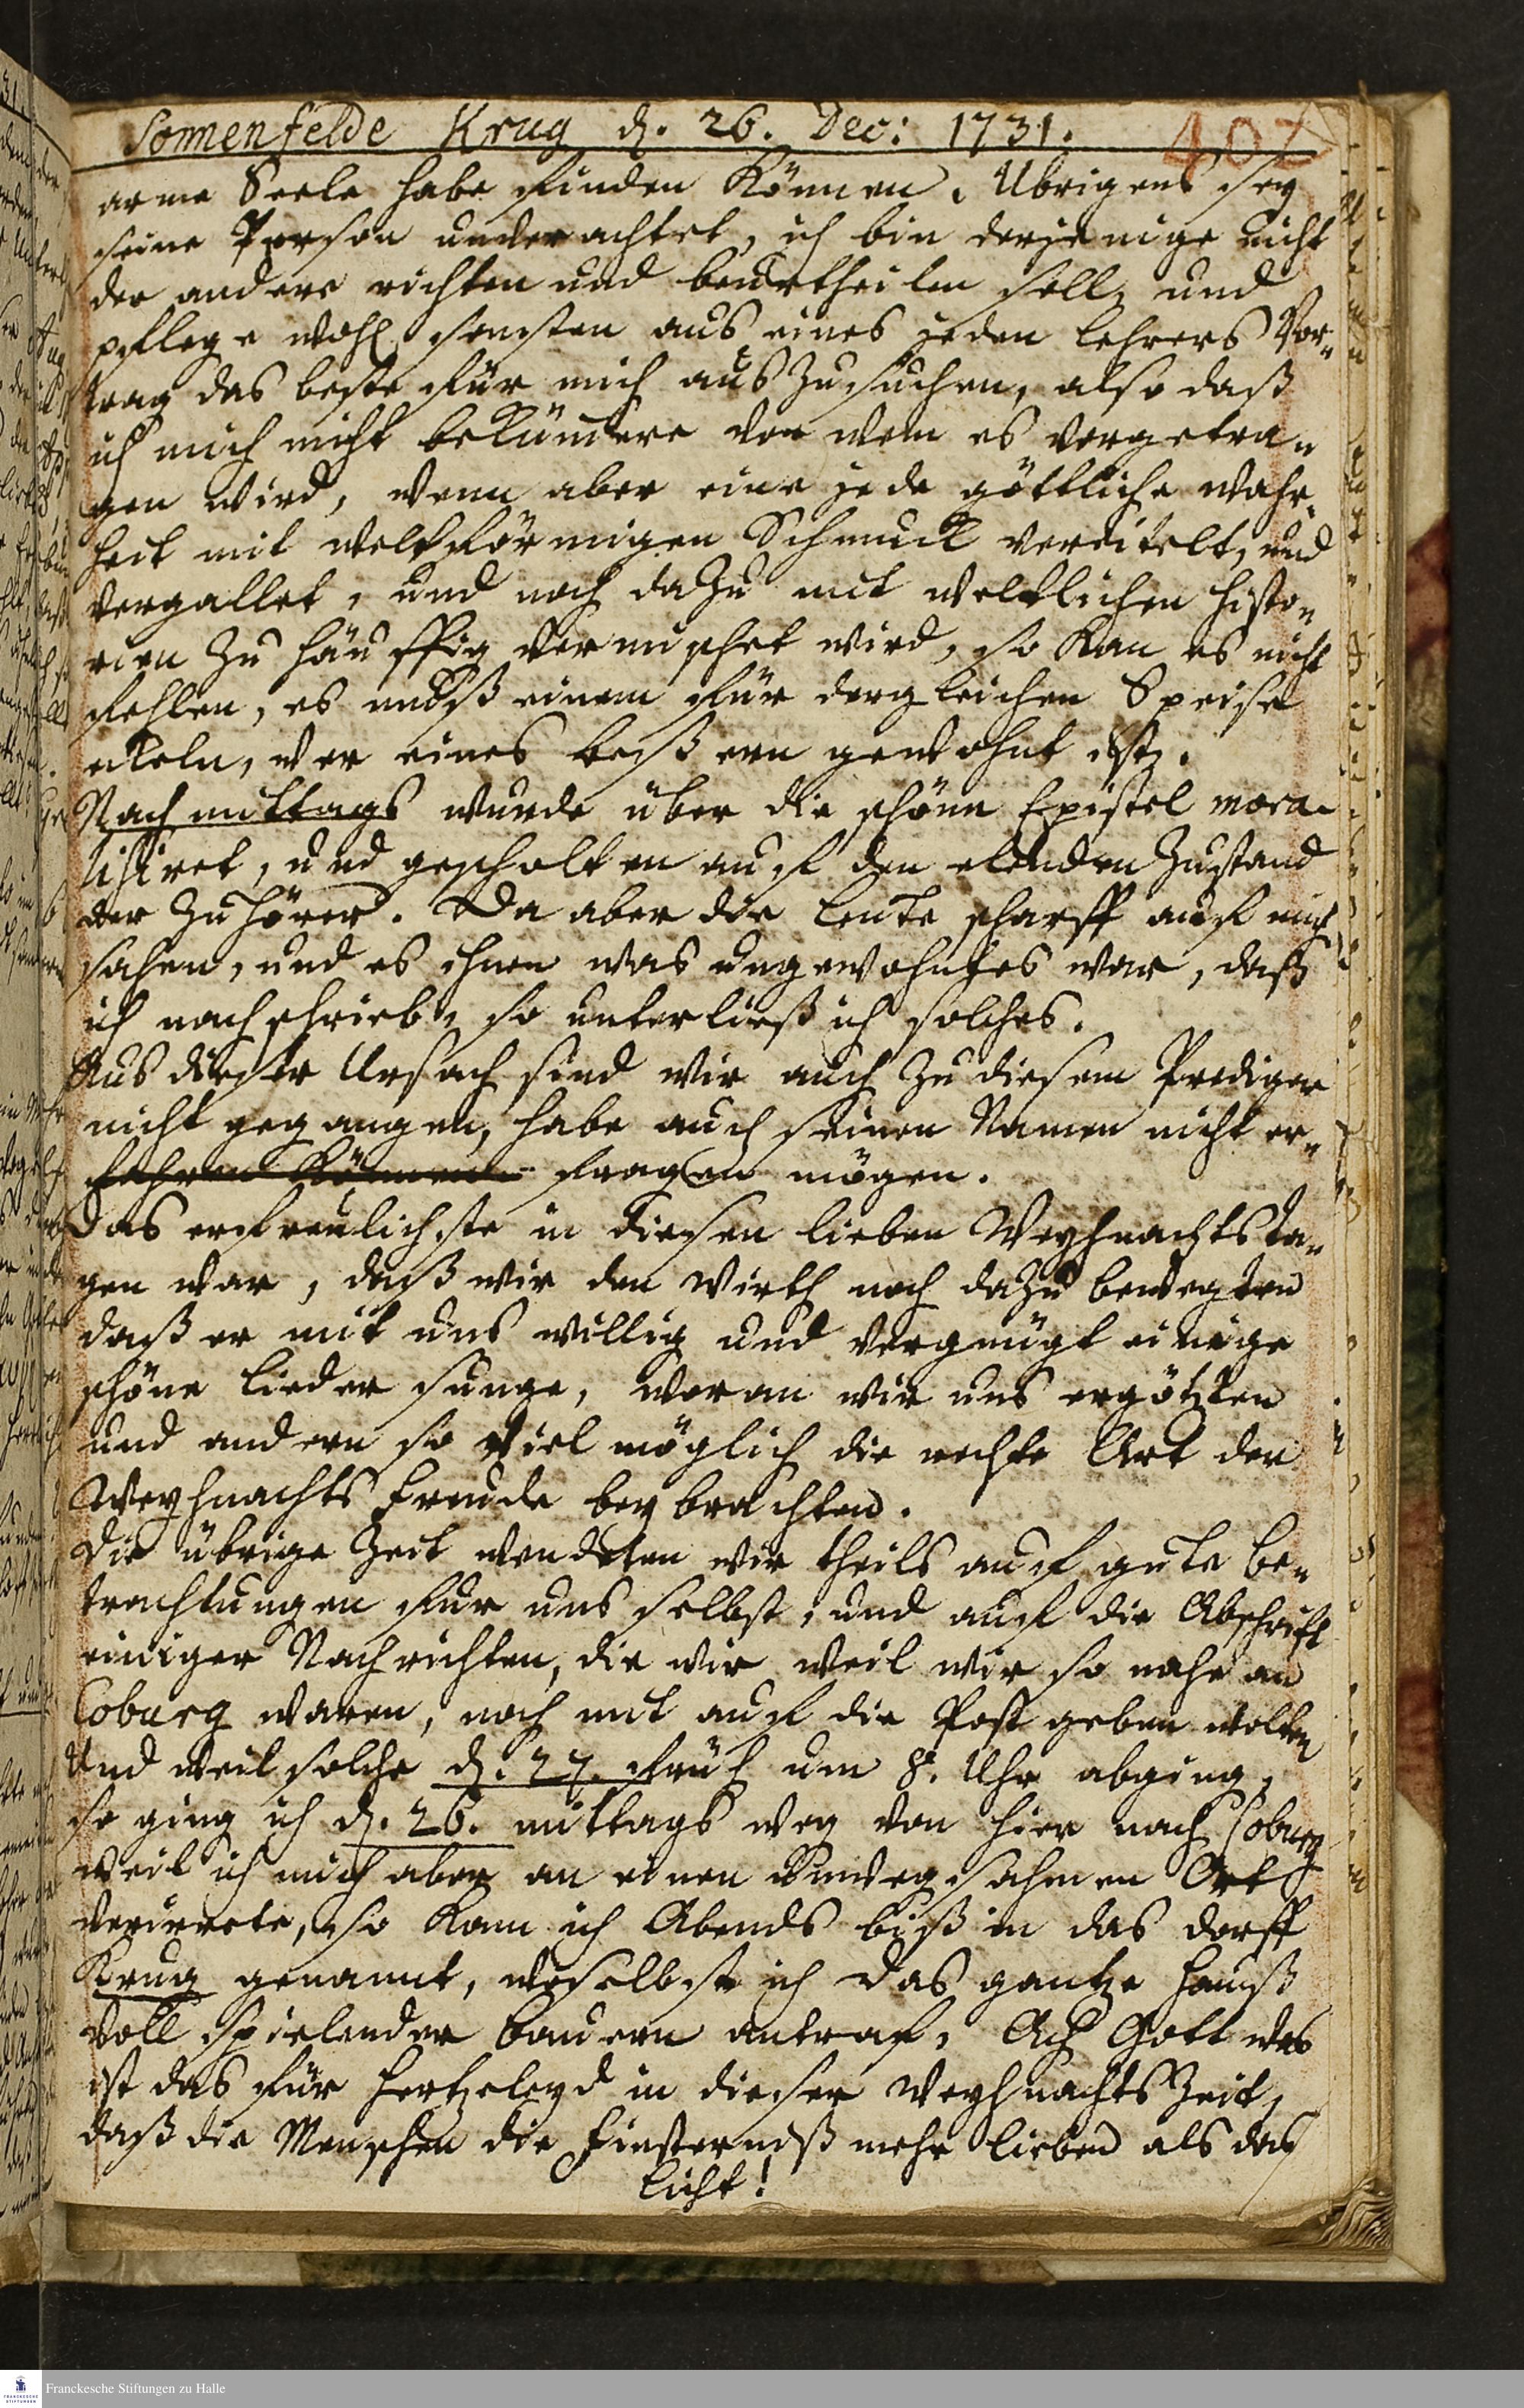 Sonnenfelde Krug d. 26. Dec: 1731.
407
arme Seele habe finden können. Übrigens sey
seine Person unverachtet, ich bin derjenige nicht
der andere richten und beurtheilen soll, und
pflege wohl sonsten aus eines jeden Lehrers Vor„
trag das beste für mich aus zu suchen, also daß
ich mich nicht bekümere von wem es vorgetra„
gen wird, wenn aber eine jede göttliche Wahr„
heit mit weltförmigen Schmuck vereitelt, und
vergallet, und noch dazu mit weltlichen Histo„
rien zu häuffig vermischet wird, so kan es nicht
fehlen, es muß einem für dergleichen Speise
ekeln, wer eines beßern gewohnt ist.
Nachmittags wurde über die schöne Epistel mora„
lisiret, und gescholten auf den elenden Zustand
der Zuhörer. Da aber die Leute scharff auf mich
sahen, und es ihnen was ungewohntes war, daß
ich nachschrieb, so unterließ ich solches.
Aus dieser Ursach sind wir auch zu diesem Prediger
nicht gegangen, habe auch seinen Namen nicht er„
fahren können fragen mögen.
Das erfreulichste in diesen lieben Weyhnachtsta„
gen war, daß wir den Wirth noch dazu bewegten
daß er mit uns willig und vergnügt einige
schöne Lieder sunge, woran wir uns ergötzten
und andern so viel möglich die rechte Art der
Weyhnachts Freude beybrachten.
Die übrige Zeit wendeten wir theils auf gute Be„
trachtungen für uns selbst, und auf die Abschrift
einiger Nachrichten, die wir weil wir so nahe an
Coburg waren, noch mit auf die Post geben wolten
Und weil solche d. 27. früh um 8. Uhr abging,
so ging ich d. 26. mittags weg von hier nach Coburg
weil ich mich aber an einen unwegsahmen Ort
verirrete, so kam ich Abends biß in das Dorff
Krug genannt, woselbst ich das gantze Hauß
voll spielender Bauern antraf. Ach Gott was
ist das für Hertzeleyd in dieser Weyhnachts Zeit,
daß die Menschen die Finsterniß mehr lieben als das
Licht!
Franckesche Stiftungen zu Halle